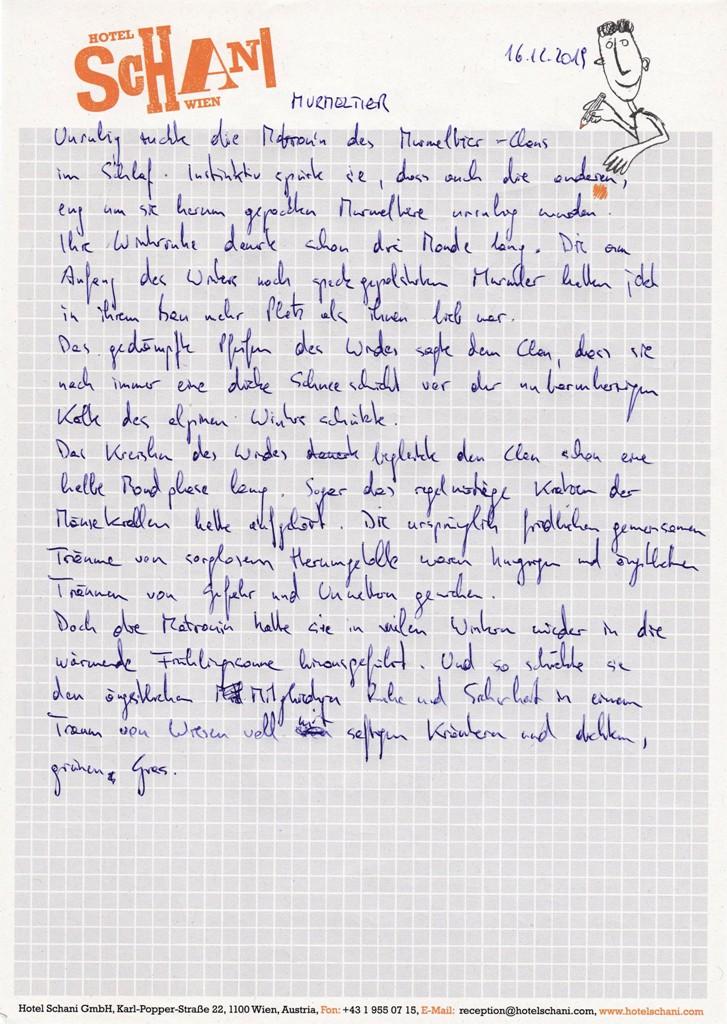 HOTEL
SCHANI
WIEN
16.12.2019
MURMELTIER
Unruhig zuckte die Matronin des Murmeltier-Clans
im Schlaf. Instinktiv spürte sie, dass auch die anderen,
eng um sie herum gepackten Murmeltiere unruhig wurden.
Ihre Winterruhe dauerte schon drei Monde lang. Die am
Anfang des Winters noch speckgepolsterten Murmler hatten jetzt
in ihrem Bau mehr Platz als ihnen lieb war.
Das gedämpfte Pfeifen des Windes sagte dem Clan, dass sie
noch immer eine dicke Schneeschicht vor der unbarmherzigen
Kälte des alpinen Winters schützte.
Das Kreischen des Windes begleitete den Clan schon eine
halbe Mondphase lang. Sogar das regelmässige Kratzen der
Mäusekrallen hatte aufgehört. Die ursprünglich friedlichen gemeinsamen
Träume von sorglosem Herumgetolle waren hungrigen und ängstlichen
Träumen von Gefahr und Unwettern gewichen.
Doch die Matronin hatte sie in vielen Wintern wieder in die
wärmende Frühlingssonne hinausgeführt. Und so schickte sie
den ängstlichen Mitgliedern Ruhe und Sicherheit in einem
Traum von Wiesen voll mit saftigen Kräutern und dichtem,
grünen Gras.
Hotel Schani GmbH, Karl-Popper-Straße 22, 1100 Wien, Austria, Fon: +43 1 955 07 15, E-Mail: reception@hotelschani.com, www.hotelschani.com